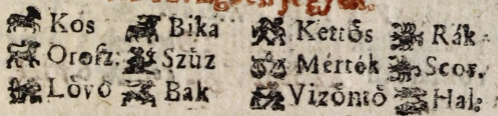 Kos Bika Kettős Rák
Orosz. Szüz Mérték Scor.
Lövő Bak Vizöntő Hal.